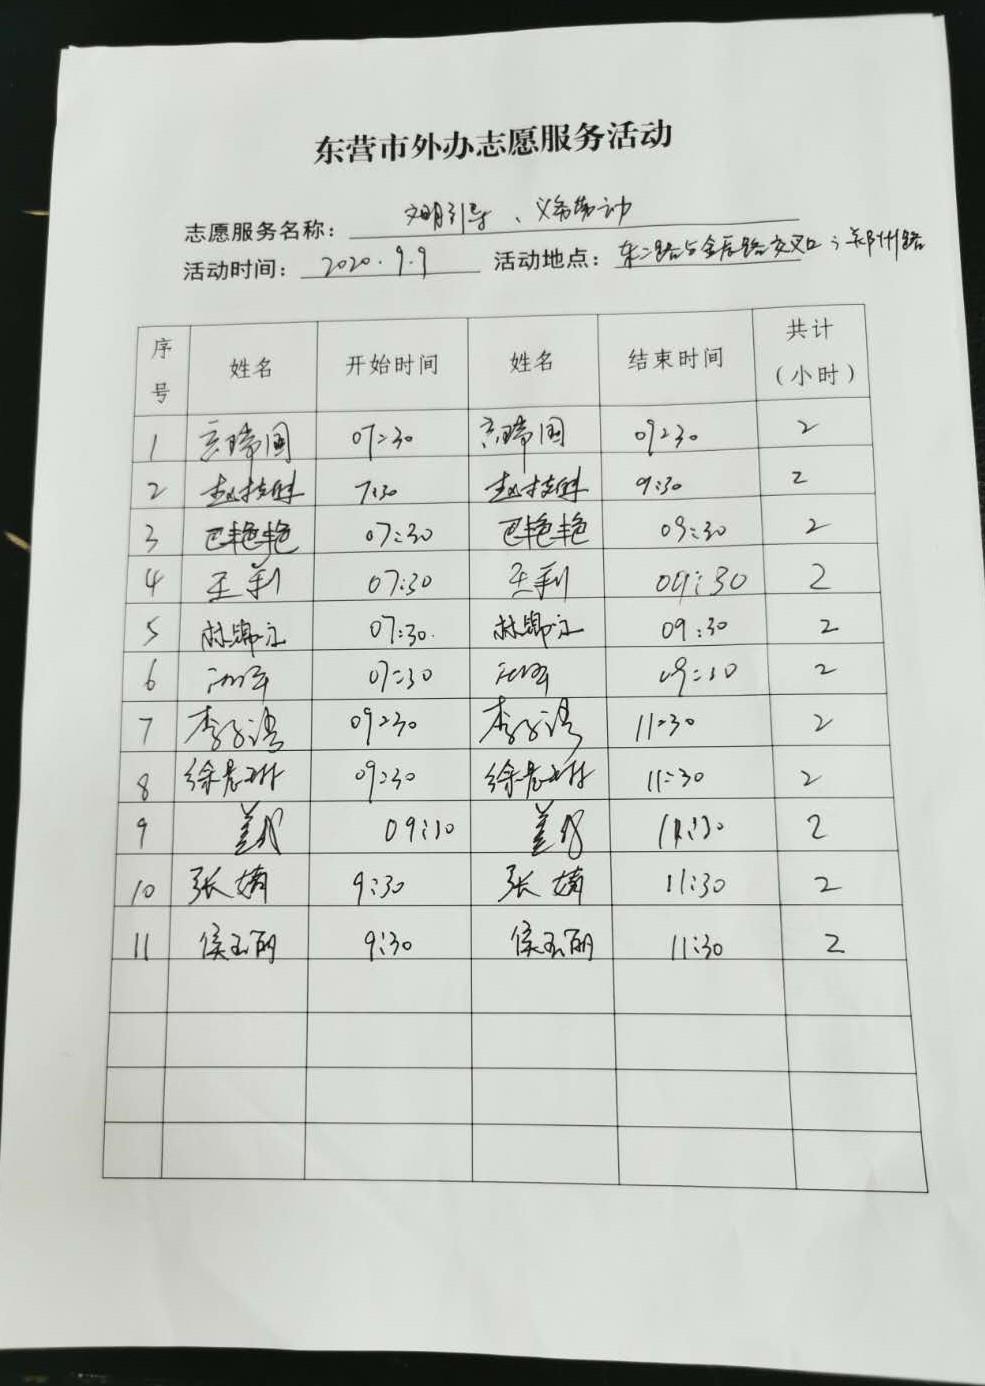 东营市外办志愿服务活动
志愿服务名称： 文明引导、义务劳动
活动时间： 2020.9.9 活动地点： 东二路与金辰路交叉口；郑州路
序号 姓名 开始时间 姓名 结束时间 共计（小时）
1 07:30 09:30 2
2 7:30 9:30 2
3 巴艳艳 07:30 巴艳艳 09:30 2
4 王利 07:30 王利 09:30 2
5 07:30 09:30 2
6 07:30 09:30 2
7 09:30 11:30 2
8 09:30 11:30 2
9 09:30 11:30 2
10 张婧 9:30 张婧 11:30 2
11 侯玉丽 9:30 侯玉丽 11:30 2